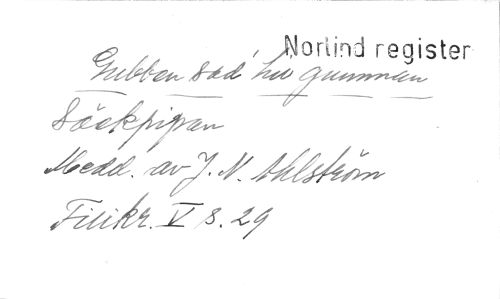 Norlind register
Gubben sad' hu gumman
Säckpipan
Medd. av J. N. Ahlström
s. 29